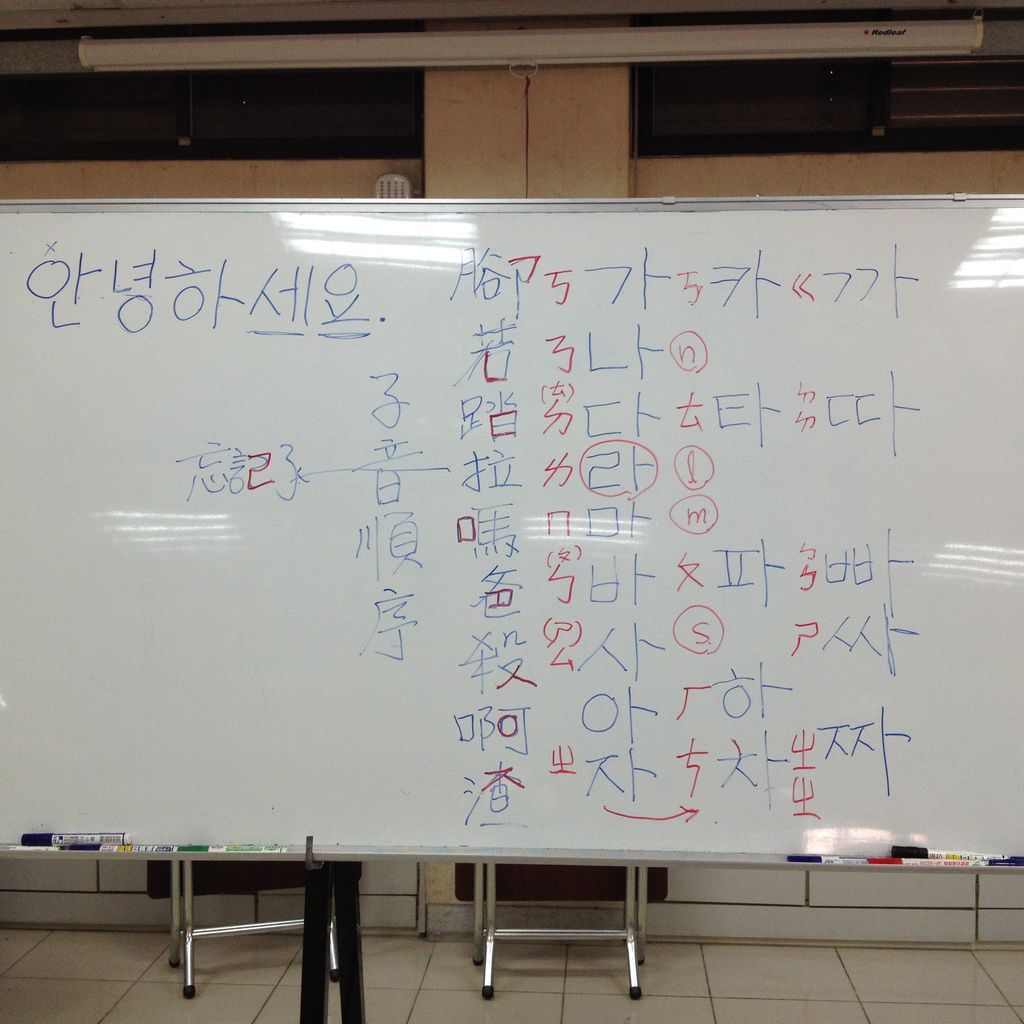 Redleaf
안녕하세요.
子音順序
忘記了
腳 ㄎ 가 ㄎ 카 ㄍ ㄲㅏ
若 ㄋ 나 n
踏 (ㄊ) ㄉ 다 ㄊ 타 ㄉㄉ 따
拉 ㄌ 라 l
嗎 ㄇ 마 m
爸 (ㄆ) ㄅ 바 ㄆ 파 ㄅㄅ 빠
殺 (ㄕ) ㄙ 사 s ㄕ 싸
啊 아 ㄏ 하
渣 ㄓ 자 ㄘ 차 ㄓㄓ 짜